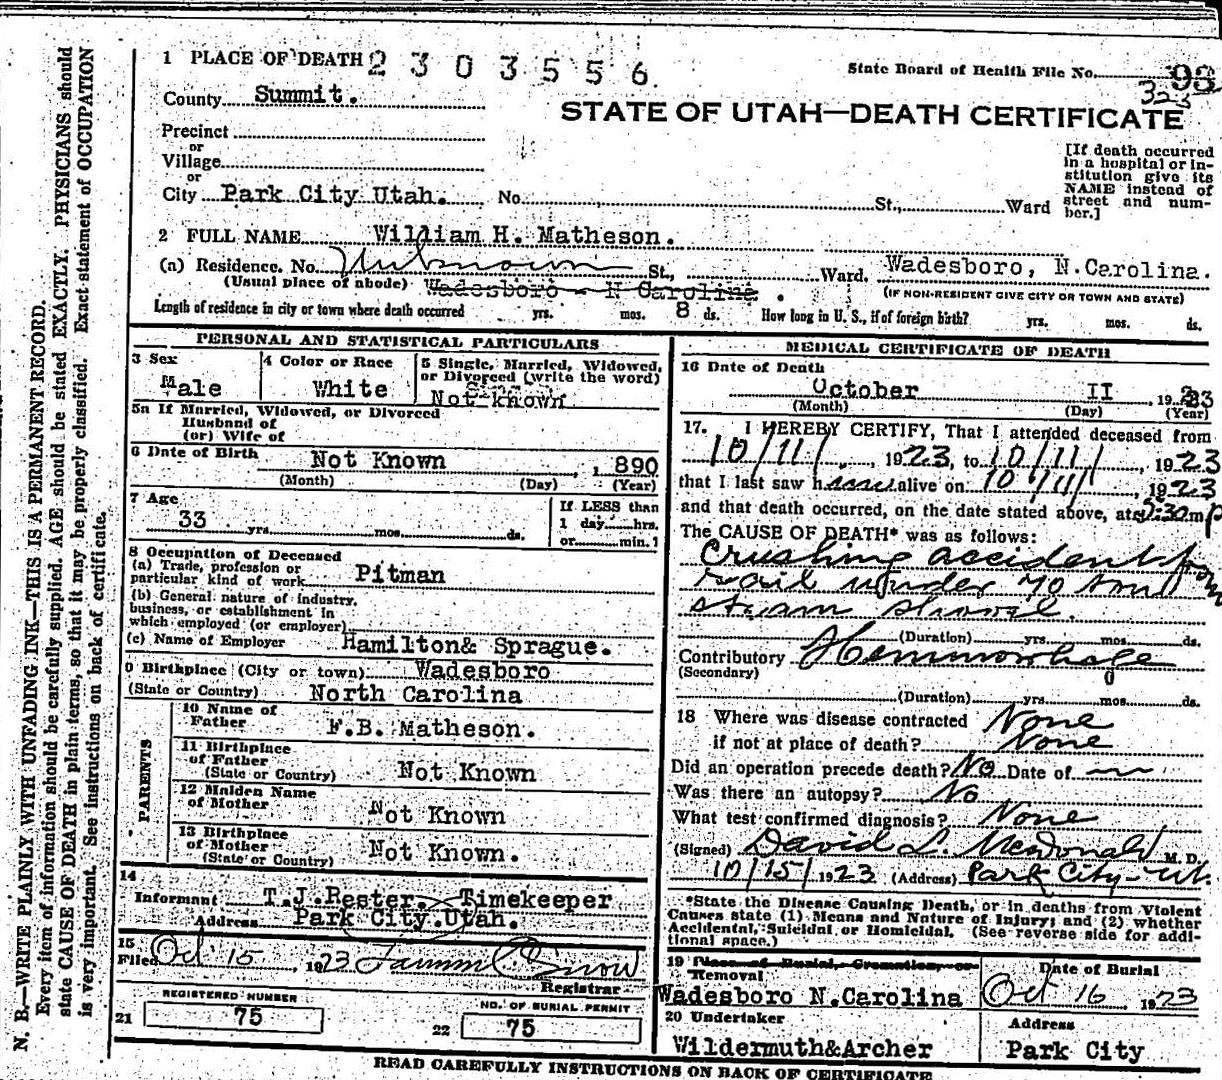 1 PLACE OF DEATH 2303556
State Board of Health File No. 93
323
County Summit.
STATE OF UTAH—DEATH CERTIFICATE
Precinct
or
Village
or
City Park City Utah. No. St., Ward
[If death occurred
in a hospital or in-
stitution give its
NAME instead of
street and num-
ber.]
2 FULL NAME William H. Matheson.
(a) Residence. No. Unknown St., Ward. Wadesboro, N.Carolina.
(Usual place of abode) Wadesboro - N Carolina . (IF NON-RESIDENT GIVE CITY OR TOWN AND STATE)
Length of residence in city or town where death occurred yrs. mos. 8 ds. How long in U. S., if of foreign birth? yrs. mos. ds.
PERSONAL AND STATISTICAL PARTICULARS
3 Sex
Male
4 Color or Race
White
5 Single, Married, Widowed,
or Divorced (write the word)
Not known
5a If Married, Widowed, or Divorced
Husband of
(or) Wife of
6 Date of Birth Not Known , 1890
(Month) (Day) (Year)
7 Age
33 yrs. mos. ds.
If LESS than
1 day hrs.
or min.
8 Occupation of Deceased
(a) Trade, profession or
particular kind of work Pitman
(b) General nature of industry,
business, or establishment in
which employed (or employer)
(c) Name of Employer Hamilton& Sprague.
9 Birthplace (City or town) Wadesboro
(State or Country) North Carolina
PARENTS
10 Name of
Father F.B. Matheson.
11 Birthplace
of Father
(State or Country) Not Known
12 Maiden Name
of Mother Not Known
13 Birthplace
of Mother
(State or Country) Not Known.
14
Informant T.J.Rester. Timekeeper
Address Park City.Utah.
15
Filed Oct 15, 1923 Snow
Registrar
REGISTERED NUMBER
21 75
NO. OF BURIAL PERMIT
22 75
MEDICAL CERTIFICATE OF DEATH
16 Date of Death
October II , 1923
(Month) (Day) (Year)
17. I HEREBY CERTIFY, That I attended deceased from
10/11/, 1923, to 10/11/, 1923
that I last saw h alive on 10/11/, 1923
and that death occurred, on the date stated above, at 2:30 m P
The CAUSE OF DEATH* was as follows:
Crushing accident from
rail under 70 ton
steam shovel.
(Duration) yrs. mos. ds.
Contributory Hemmorrhage
(Secondary)
(Duration) yrs. mos. ds.
18 Where was disease contracted None
if not at place of death? None
Did an operation precede death? No Date of —
Was there an autopsy? No
What test confirmed diagnosis? None
(Signed) David L. McDonald M. D.
10/15/1923 (Address) Park City-Ut.
*State the Disease Causing Death, or in deaths from Violent
Causes state (1) Means and Nature of Injury; and (2) whether
Accidental, Suicidal or Homicidal. (See reverse side for addi-
tional space.)
19 Place of Burial, Cremation, or
Removal
Wadesboro N.Carolina
Date of Burial
Oct 16 1923
20 Undertaker
Wildermuth&Archer
Address
Park City
READ CAREFULLY INSTRUCTIONS ON BACK OF CERTIFICATE
N. B.—WRITE PLAINLY WITH UNFADING INK—THIS IS A PERMANENT RECORD.
Every item of information should be carefully supplied. AGE should be stated EXACTLY. PHYSICIANS should
state CAUSE OF DEATH in plain terms, so that it may be properly classified. Exact statement of OCCUPATION
is very important. See instructions on back of certificate.